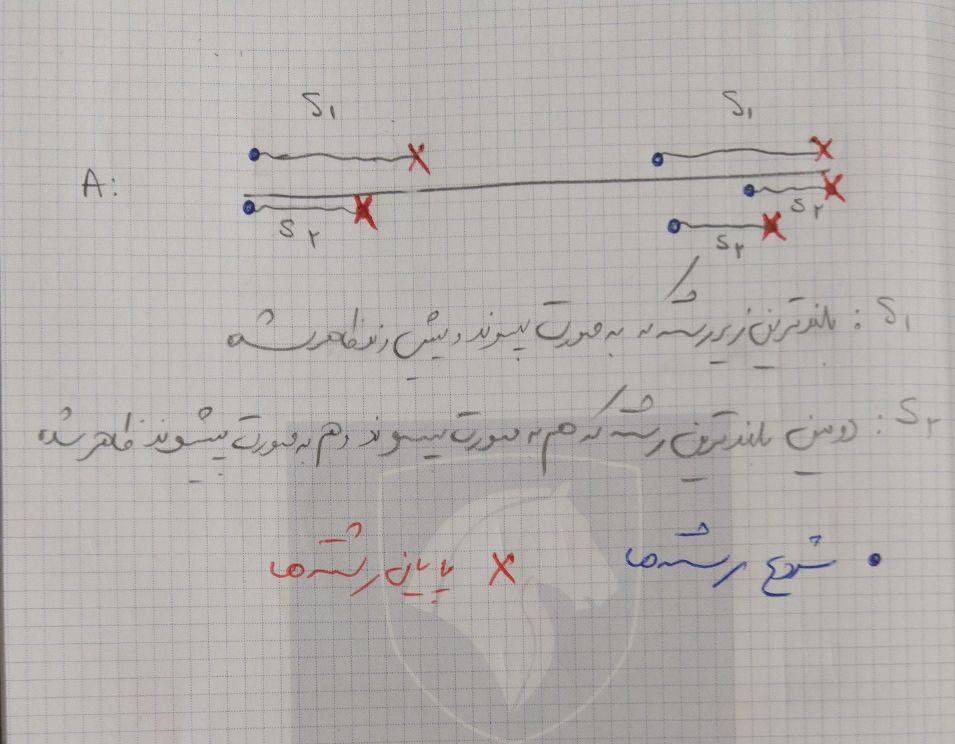 S۱ S۱
A:
S۲ S۲
S۲
S۱ : بلندترین زیررشته که به صورت پسوند و پیشوند ظاهر شده
S۲ : دومین بلندترین رشته که هم به صورت پسوند و هم به صورت پیشوند ظاهر شده
● شروع رشته‌ها X پایان رشته‌ها